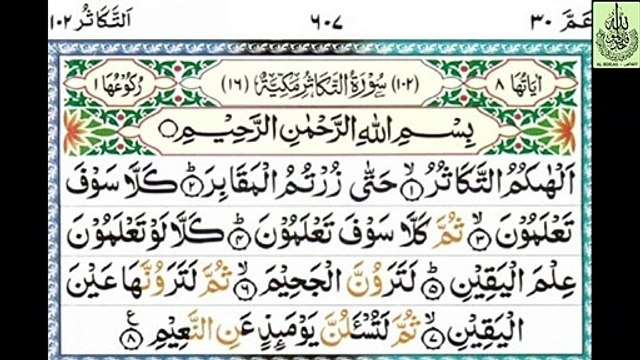 عَمَّ ٣٠ ٦٠٧ اَلتَّكَاثُرُ ١٠٢
اٰيَاتُهَا ٨ (١٠٢) سُوْرَةُ التَّكَاثُرِ مَكِّيَّةٌ (١٦) رُكُوْعُهَا ١
بِسْمِ اللّٰهِ الرَّحْمٰنِ الرَّحِيْمِ
اَلْهٰىكُمُ التَّكَاثُرُ ۙ‏﴿۱﴾ حَتّٰى زُرْتُمُ الْمَقَابِرَ ؕ‏﴿۲﴾ كَلَّا سَوْفَ
تَعْلَمُوْنَ ۙ‏﴿۳﴾ ثُمَّ كَلَّا سَوْفَ تَعْلَمُوْنَ ؕ‏﴿۴﴾ كَلَّا لَوْ تَعْلَمُوْنَ
عِلْمَ الْيَقِيْنِ ؕ‏﴿۵﴾ لَتَرَوُنَّ الْجَحِيْمَ ۙ‏﴿۶﴾ ثُمَّ لَتَرَوُنَّهَا عَيْنَ
الْيَقِيْنِ ۙ‏﴿۷﴾ ثُمَّ لَتُسْــَٔلُنَّ يَوْمَئِذٍ عَنِ النَّعِيْمِ ﴿۸﴾ ع